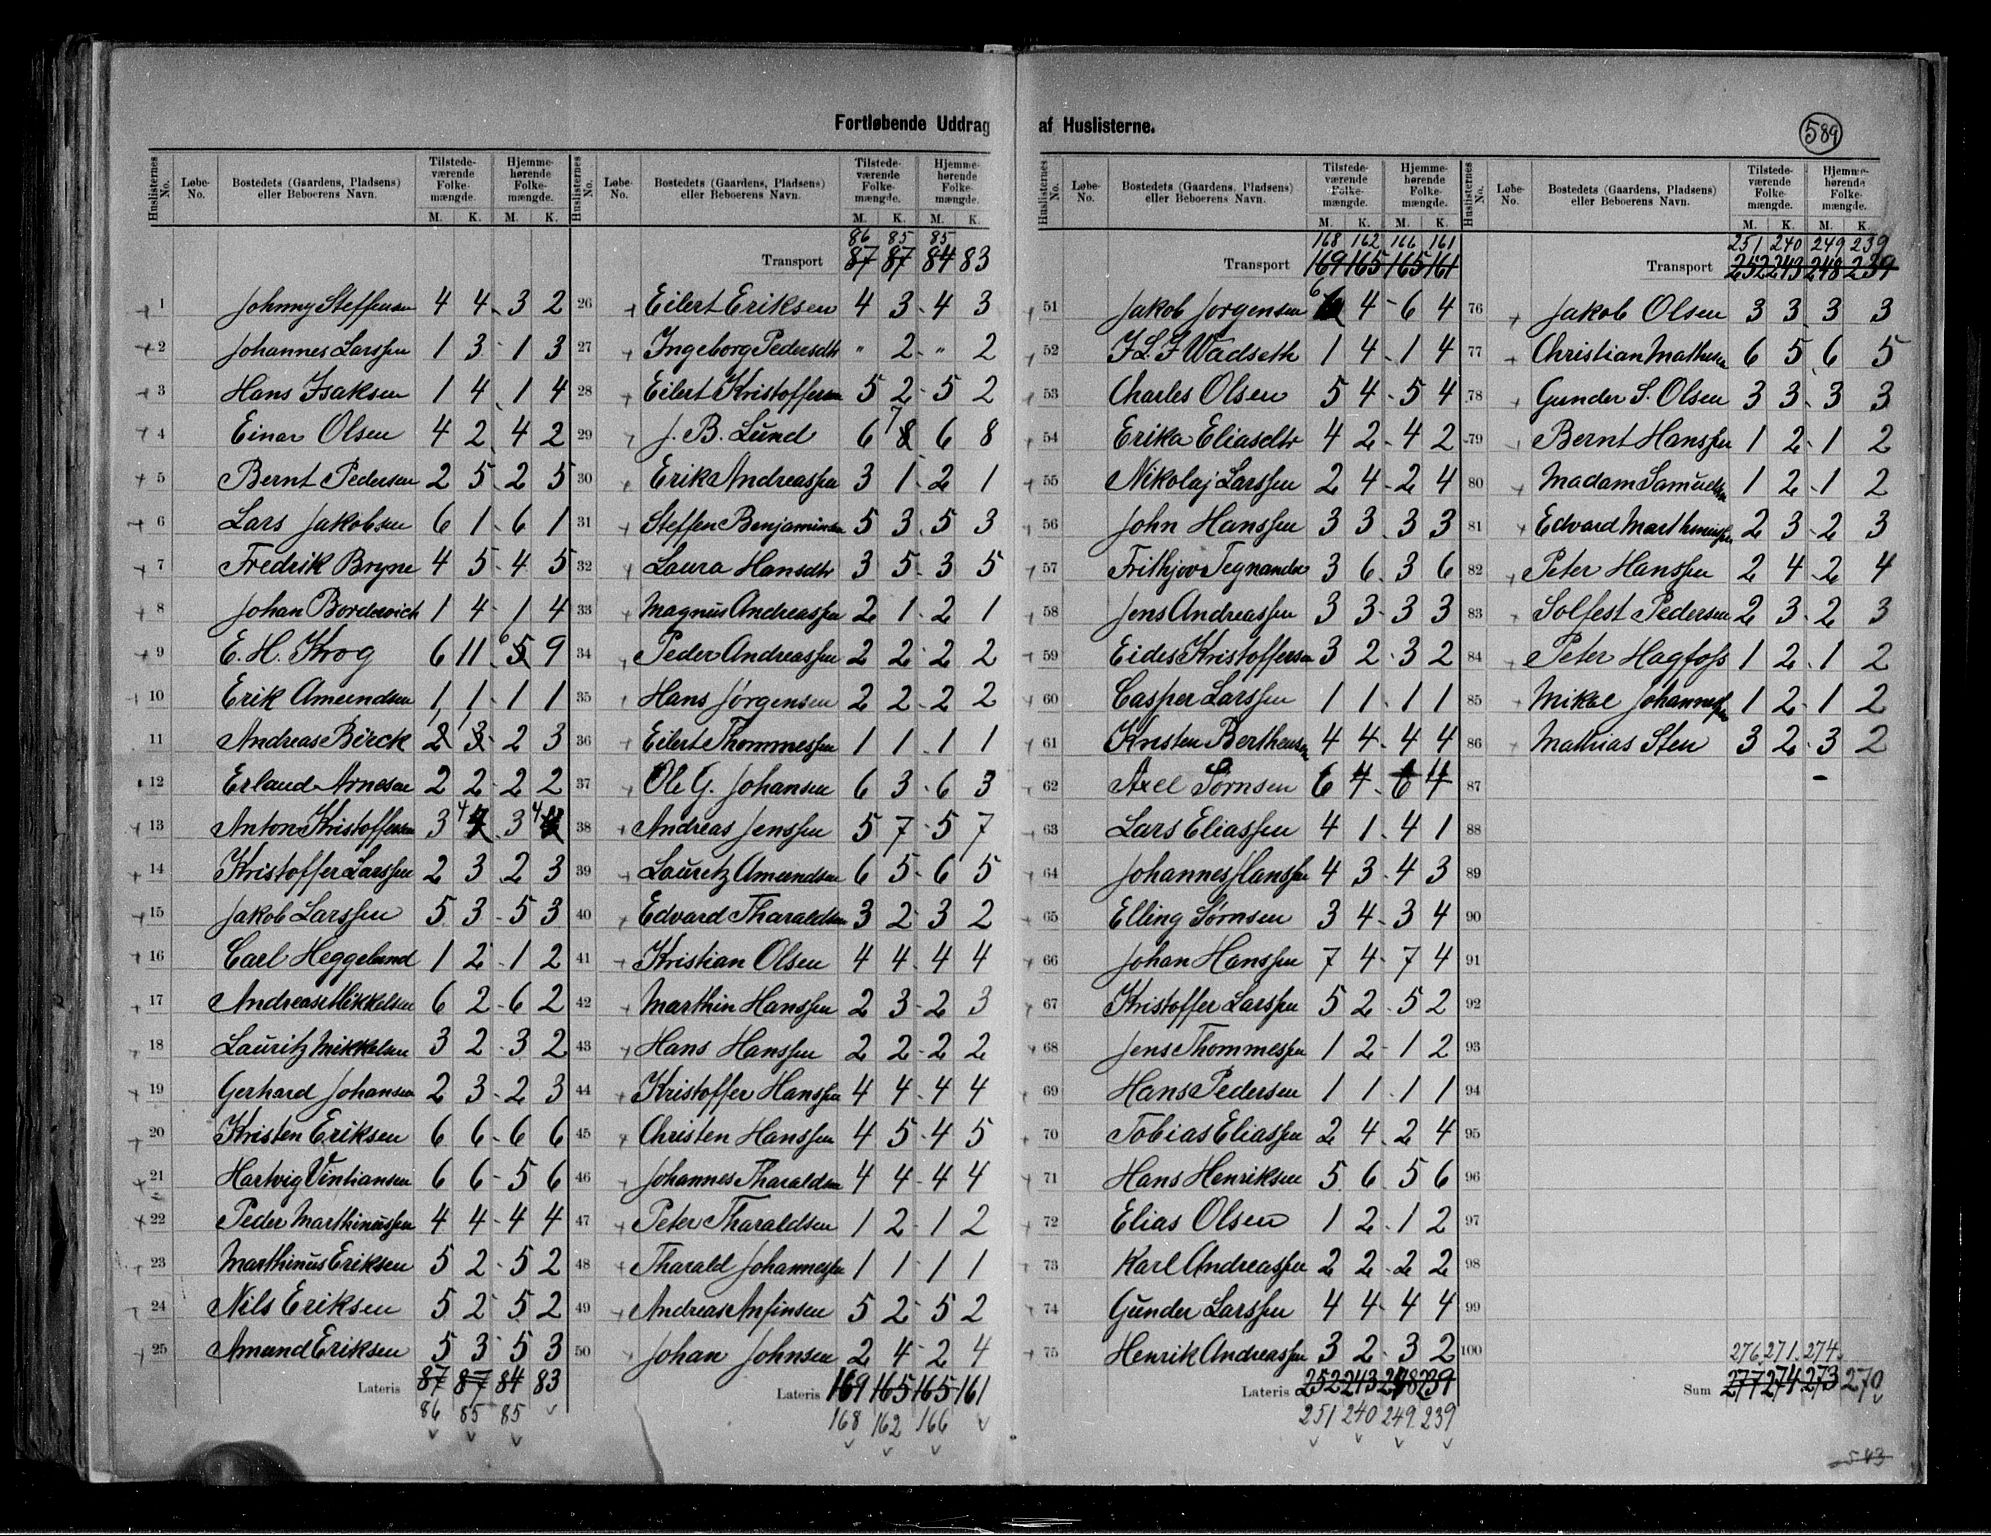 Fortløbende Uddrag af Huslisterne.
589
Huslisternes No. Løbe-No. Bostedets (Gaardens, Pladsens) eller Beboerens Navn. Tilstedeværende Folkemængde. M. K. Hjemmehørende Folkemængde. M. K.
1 Johnny Steffensen 4 4 3 2
2 Johannes Larssen 1 3 1 3
3 Hans Isaksen 1 4 1 4
4 Einar Olsen 4 2 4 2
5 Bernt Pedersen 2 5 2 5
6 Lars Jakobsen 6 1 6 1
7 Fredrik Bryne 4 5 4 5
8 Johan Bordevich 1 4 1 4
9 E. H. Krog 6 11 6 5 9
10 Erik Amundsen 1 1 1 1
11 Andreas Birck 1 2 1 3 2 3
12 Erland Arnesen 2 2 2 2
13 Anton Kristoffersen 3 4 3 4
14 Kristoffer Larssen 2 3 2 3
15 Jakob Larssen 5 3 5 3
16 Carl Heggelund 1 2 1 2
17 Andreas Mikkelsen 6 2 6 2
18 Lauritz Mikkelsen 3 2 3 2
19 Gerhard Johansen 2 3 2 3
20 Kristen Eriksen 6 6 6 6
21 Hartvig Vintiansen 6 6 5 6
22 Peder Marthinussen 4 4 4 4
23 Marthinus Eriksen 5 2 5 2
24 Nils Eriksen 5 2 5 2
25 Amund Eriksen 5 3 5 3
Lateris 87 87 84 83
86 85 85
Huslisternes No. Løbe-No. Bostedets (Gaardens, Pladsens) eller Beboerens Navn. Tilstedeværende Folkemængde. M. K. Hjemmehørende Folkemængde. M. K.
86 85 85
Transport 87 87 84 83
26 Eilert Eriksen 4 3 4 3
27 Ingeborg Pedersdtr " 2 " 2
28 Eilert Kristoffersen 5 2 5 2
29 J. B. Lund 6 7 8 6 8
30 Erik Andreassen 3 1 2 1
31 Steffen Benjaminsen 5 3 5 3
32 Laura Hansdtr 3 5 3 5
33 Magnus Andreassen 2 1 2 1
34 Peder Andreassen 2 2 2 2
35 Hans Jørgensen 2 2 2 2
36 Eilert Thommessen 1 1 1 1
37 Ole G. Johansen 6 3 6 3
38 Andreas Jenssen 5 7 5 7
39 Lauritz Amundsen 6 5 6 5
40 Edvard Tharaldsen 3 2 3 2
41 Kristian Olsen 4 4 4 4
42 Marthin Hanssen 2 3 2 3
43 Hans Hanssen 2 2 2 2
44 Kristoffer Hanssen 4 4 4 4
45 Christen Hanssen 4 5 4 5
46 Johannes Tharaldsen 4 4 4 4
47 Peter Tharaldsen 1 2 1 2
48 Tharald Johannessen 1 1 1 1
49 Andreas Anfinsen 5 2 5 2
50 Johan Johnsen 2 4 2 4
Lateris 169 165 165 161
168 162 166
Huslisternes No. Løbe-No. Bostedets (Gaardens, Pladsens) eller Beboerens Navn. Tilstedeværende Folkemængde. M. K. Hjemmehørende Folkemængde. M. K.
168 162 166 161
Transport 169 165 165 161
51 Jakob Jørgensen 6 4 6 4
52 F. L. F Wadseth 1 4 1 4
53 Charles Olsen 5 4 5 4
54 Erika Eliasdtr 4 2 4 2
55 Nikolaj Larssen 2 4 2 4
56 John Hanssen 3 3 3 3
57 Frithjov Tegnander 3 6 3 6
58 Jens Andreassen 3 3 3 3
59 Eides Kristoffersen 3 2 3 2
60 Casper Larssen 1 1 1 1
61 Knsten Berthensen 4 4 4 4
62 Axel Sørnsen 6 4 6 4
63 Lars Eliassen 4 1 4 1
64 Johannes Hanssen 4 3 4 3
65 Elling Sørnsen 3 4 3 4
66 Johan Hanssen 7 4 7 4
67 Kristoffer Larssen 5 2 5 2
68 Jens Thommessen 1 2 1 2
69 Hans Pedersen 1 1 1 1
70 Tobias Eliassen 2 4 2 4
71 Hans Henriksen 5 6 5 6
72 Elias Olsen 1 2 1 2
73 Karl Andreassen 2 2 2 2
74 Gunder Larssen 4 4 4 4
75 Henrik Andreassen 3 2 3 2
Lateris 252 243 248 239
251 240 249 239
Huslisternes No. Løbe-No. Bostedets (Gaardens, Pladsens) eller Beboerens Navn. Tilstedeværende Folkemængde. M. K. Hjemmehørende Folkemængde. M. K.
251 240 249 239
Transport 252 243 248 239
76 Jakob Olsen 3 3 3 3
77 Christian Mathesen 6 5 6 5
78 Gunder S. Olsen 3 3 3 3
79 Bernt Hanssen 1 2 1 2
80 Madam Samuelsen 1 2 1 2
81 Edvard Marthinussen 2 3 2 3
82 Peter Hanssen 2 4 2 4
83 Solfest Pedersen 2 3 2 3
84 Peter Hagfoss 1 2 1 2
85 Mikal Johannessen 1 2 1 2
86 Mathias Sten 3 2 3 2
87
88
89
90
91
92
93
94
95
96
97
98
99
100
276 271 274
Sum 277 274 273 270
543